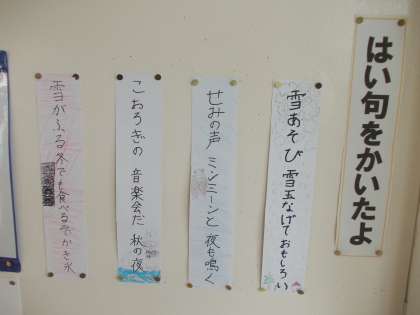 はい句をかいたよ
雪あそび 雪玉なげておもしろい
せみの声 ミンミーンと 夜も鳴く
こおろぎの 音楽会だ 秋の夜
雪がふる 冬でも食べる かき氷